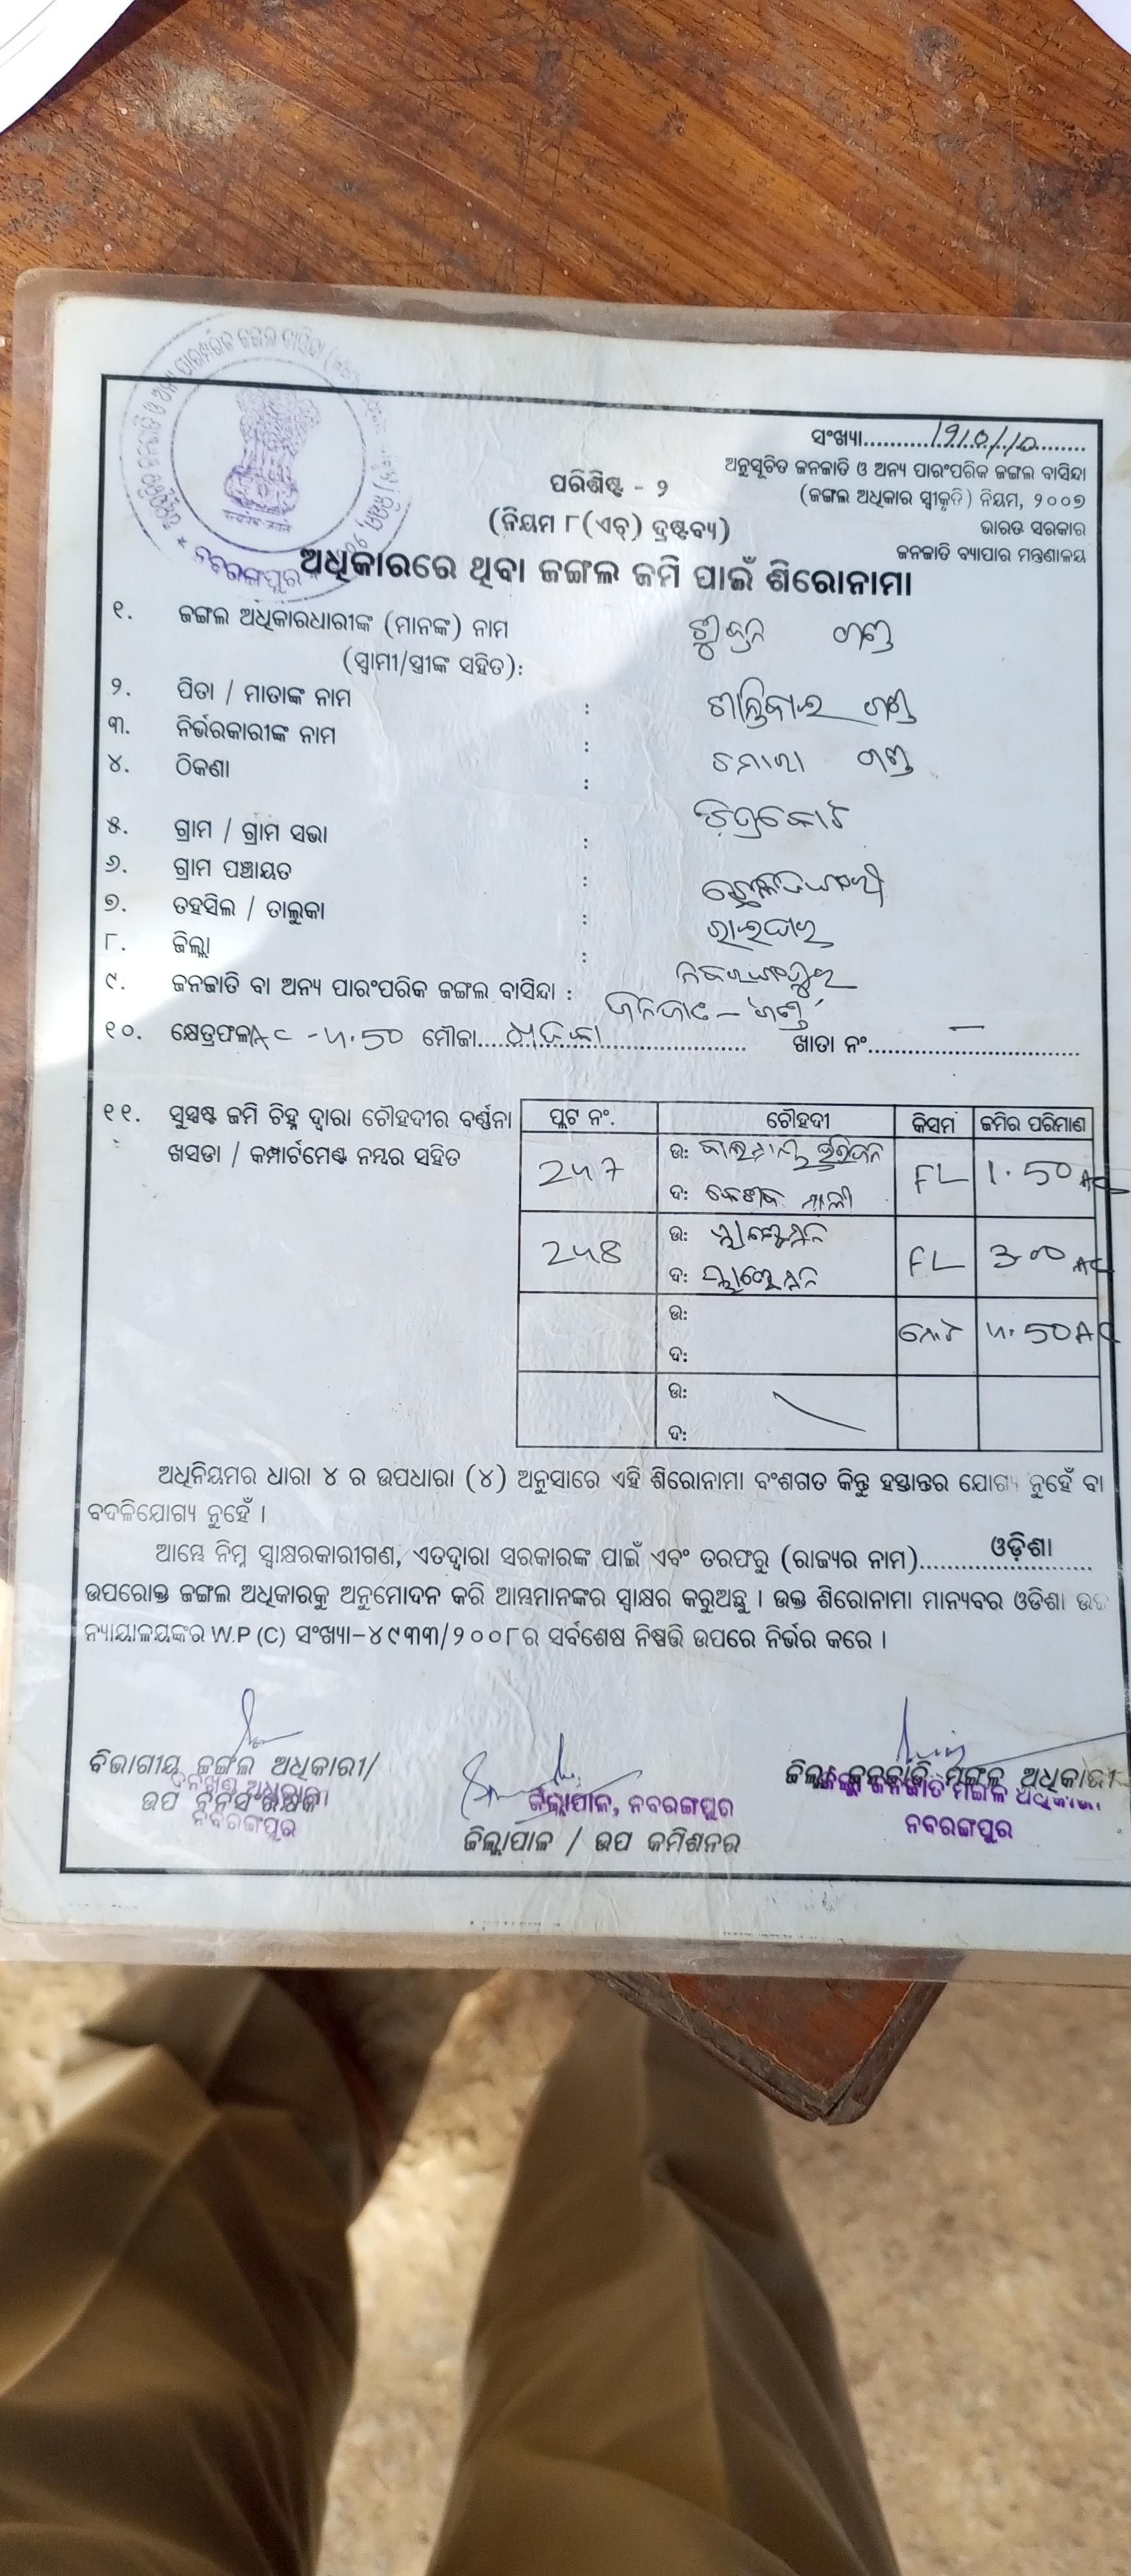 ସଂଖ୍ୟା..........1910/10..........
ଅନୁସୂଚିତ ଜନଜାତି ଓ ଅନ୍ୟ ପାରଂପରିକ ଜଙ୍ଗଲ ବାସିନ୍ଦା
(ଜଙ୍ଗଲ ଅଧିକାର ସ୍ୱୀକୃତି) ନିୟମ, ୨୦୦୭
ଭାରତ ସରକାର
ଜନଜାତି ବ୍ୟାପାର ମନ୍ତ୍ରଣାଳୟ
ପରିଶିଷ୍ଟ - ୨
(ନିୟମ ୮(ଏଚ୍) ଦ୍ରଷ୍ଟବ୍ୟ)
ନବରଙ୍ଗପୁର
ଅଧିକାରରେ ଥିବା ଜଙ୍ଗଲ ଜମି ପାଇଁ ଶିରୋନାମା
୧. ଜଙ୍ଗଲ ଅଧିକାରଧାରୀଙ୍କ (ମାନଙ୍କ) ନାମ ଗଣ୍ଡ
(ସ୍ୱାମୀ/ସ୍ତ୍ରୀଙ୍କ ସହିତ):
୨. ପିତା / ମାତାଙ୍କ ନାମ : ଗଣ୍ଡ
୩. ନିର୍ଭରକାରୀଙ୍କ ନାମ : ଗଣ୍ଡ
୪. ଠିକଣା :
୫. ଗ୍ରାମ / ଗ୍ରାମ ସଭା : ଚିତ୍ରକୋଟ
୬. ଗ୍ରାମ ପଞ୍ଚାୟତ :
୭. ତହସିଲ / ତାଲୁକା : ରାଇଘର
୮. ଜିଲ୍ଲା : ନବରଙ୍ଗପୁର
୯. ଜନଜାତି ବା ଅନ୍ୟ ପାରଂପରିକ ଜଙ୍ଗଲ ବାସିନ୍ଦା : ଜନଜାତି - ଗଣ୍ଡ
୧୦. କ୍ଷେତ୍ରଫଳ AC - 4.50 ମୌଜା.................... ଖାତା ନଂ.................... —
୧୧. ସୁସ୍ପଷ୍ଟ ଜମି ଚିହ୍ନ ଦ୍ୱାରା ଚୌହଦୀର ବର୍ଣ୍ଣନା
ଖସଡା / କମ୍ପାର୍ଟମେଣ୍ଟ ନମ୍ବର ସହିତ
ପ୍ଲଟ ନଂ. ଚୌହଦୀ କିସମ ଜମିର ପରିମାଣ
247 ଉ: ହରିଜନ FL 1.50 AC
ଦ: କେଶବ ମାଳୀ
248 ଉ: ପ୍ଲାଣ୍ଟେସନ FL 3.00 AC
ଦ: ପ୍ଲାଣ୍ଟେସନ
ଉ: ମୋଟ 4.50 AC
ଦ:
ଉ:
ଦ:
ଅଧିନିୟମର ଧାରା ୪ ର ଉପଧାରା (୪) ଅନୁସାରେ ଏହି ଶିରୋନାମା ବଂଶଗତ କିନ୍ତୁ ହସ୍ତାନ୍ତର ଯୋଗ୍ୟ ନୁହେଁ ବା
ବଦଳିଯୋଗ୍ୟ ନୁହେଁ ।
ଆମ୍ଭେ ନିମ୍ନ ସ୍ୱାକ୍ଷରକାରୀଗଣ, ଏତଦ୍ୱାରା ସରକାରଙ୍କ ପାଇଁ ଏବଂ ତରଫରୁ (ରାଜ୍ୟର ନାମ)..........ଓଡ଼ିଶା..........
ଉପରୋକ୍ତ ଜଙ୍ଗଲ ଅଧିକାରକୁ ଅନୁମୋଦନ କରି ଆମ୍ଭମାନଙ୍କର ସ୍ୱାକ୍ଷର କରୁଅଛୁ । ଉକ୍ତ ଶିରୋନାମା ମାନ୍ୟବର ଓଡିଶା ଉଚ୍ଚ
ନ୍ୟାୟାଳୟଙ୍କର W.P (C) ସଂଖ୍ୟା-୪୯୩୩/୨୦୦୮ର ସର୍ବଶେଷ ନିଷ୍ପତ୍ତି ଉପରେ ନିର୍ଭର କରେ ।
ବିଭାଗୀୟ ଜଙ୍ଗଲ ଅଧିକାରୀ/
ଉପ ବନସଂରକ୍ଷକ
ନବରଙ୍ଗପୁର
ଜିଲ୍ଲାପାଳ, ନବରଙ୍ଗପୁର
ଜିଲ୍ଲାପାଳ / ଉପ କମିଶନର
ଜିଲ୍ଲା ଜନଜାତି ମଙ୍ଗଳ ଅଧିକାରୀ
ଜିଲ୍ଲା ଜନଜାତି ମଙ୍ଗଳ ଅଧିକାରୀ
ନବରଙ୍ଗପୁର